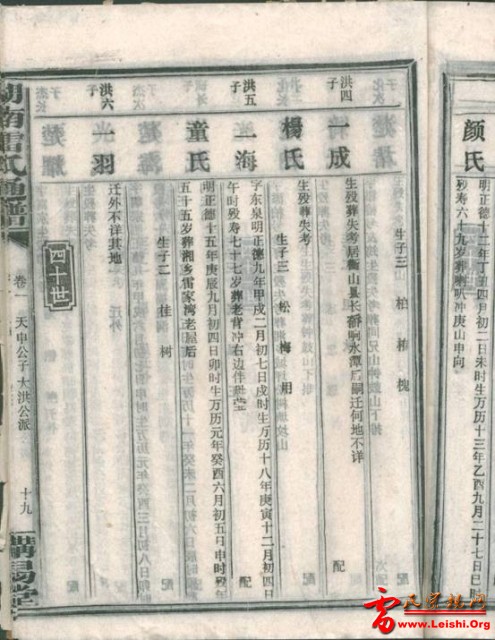 颜氏
明正德十二年丁丑四月初二日未时生万历十三年乙酉九月二十七日巳时
殁寿六十九岁葬喇叭冲庚山申向
生子三 柏 槐
洪四子
一成
生殁葬失考居衡山县长番响水潭后嗣迁何地不详 配
杨氏
生殁葬失考
生子三 松 梅 用
洪五子
一海
字东泉明正德九年甲戌二月初七日戌时生万历十八年庚寅十二月初四日
午时殁寿七十七岁葬老背冲右边伴堂 配
童氏
明正德十五年庚辰九月初四日卯时生万历元年癸酉六月初五日申时殁年
五十五岁葬湘乡雷家湾老屋后
生子二 桂 树
洪六子
一羽
迁外不详其地 配
四十世
湖南雷氏通谱
卷一 天申公子 大洪公派
十九
讲易堂
www.Leishi.Org